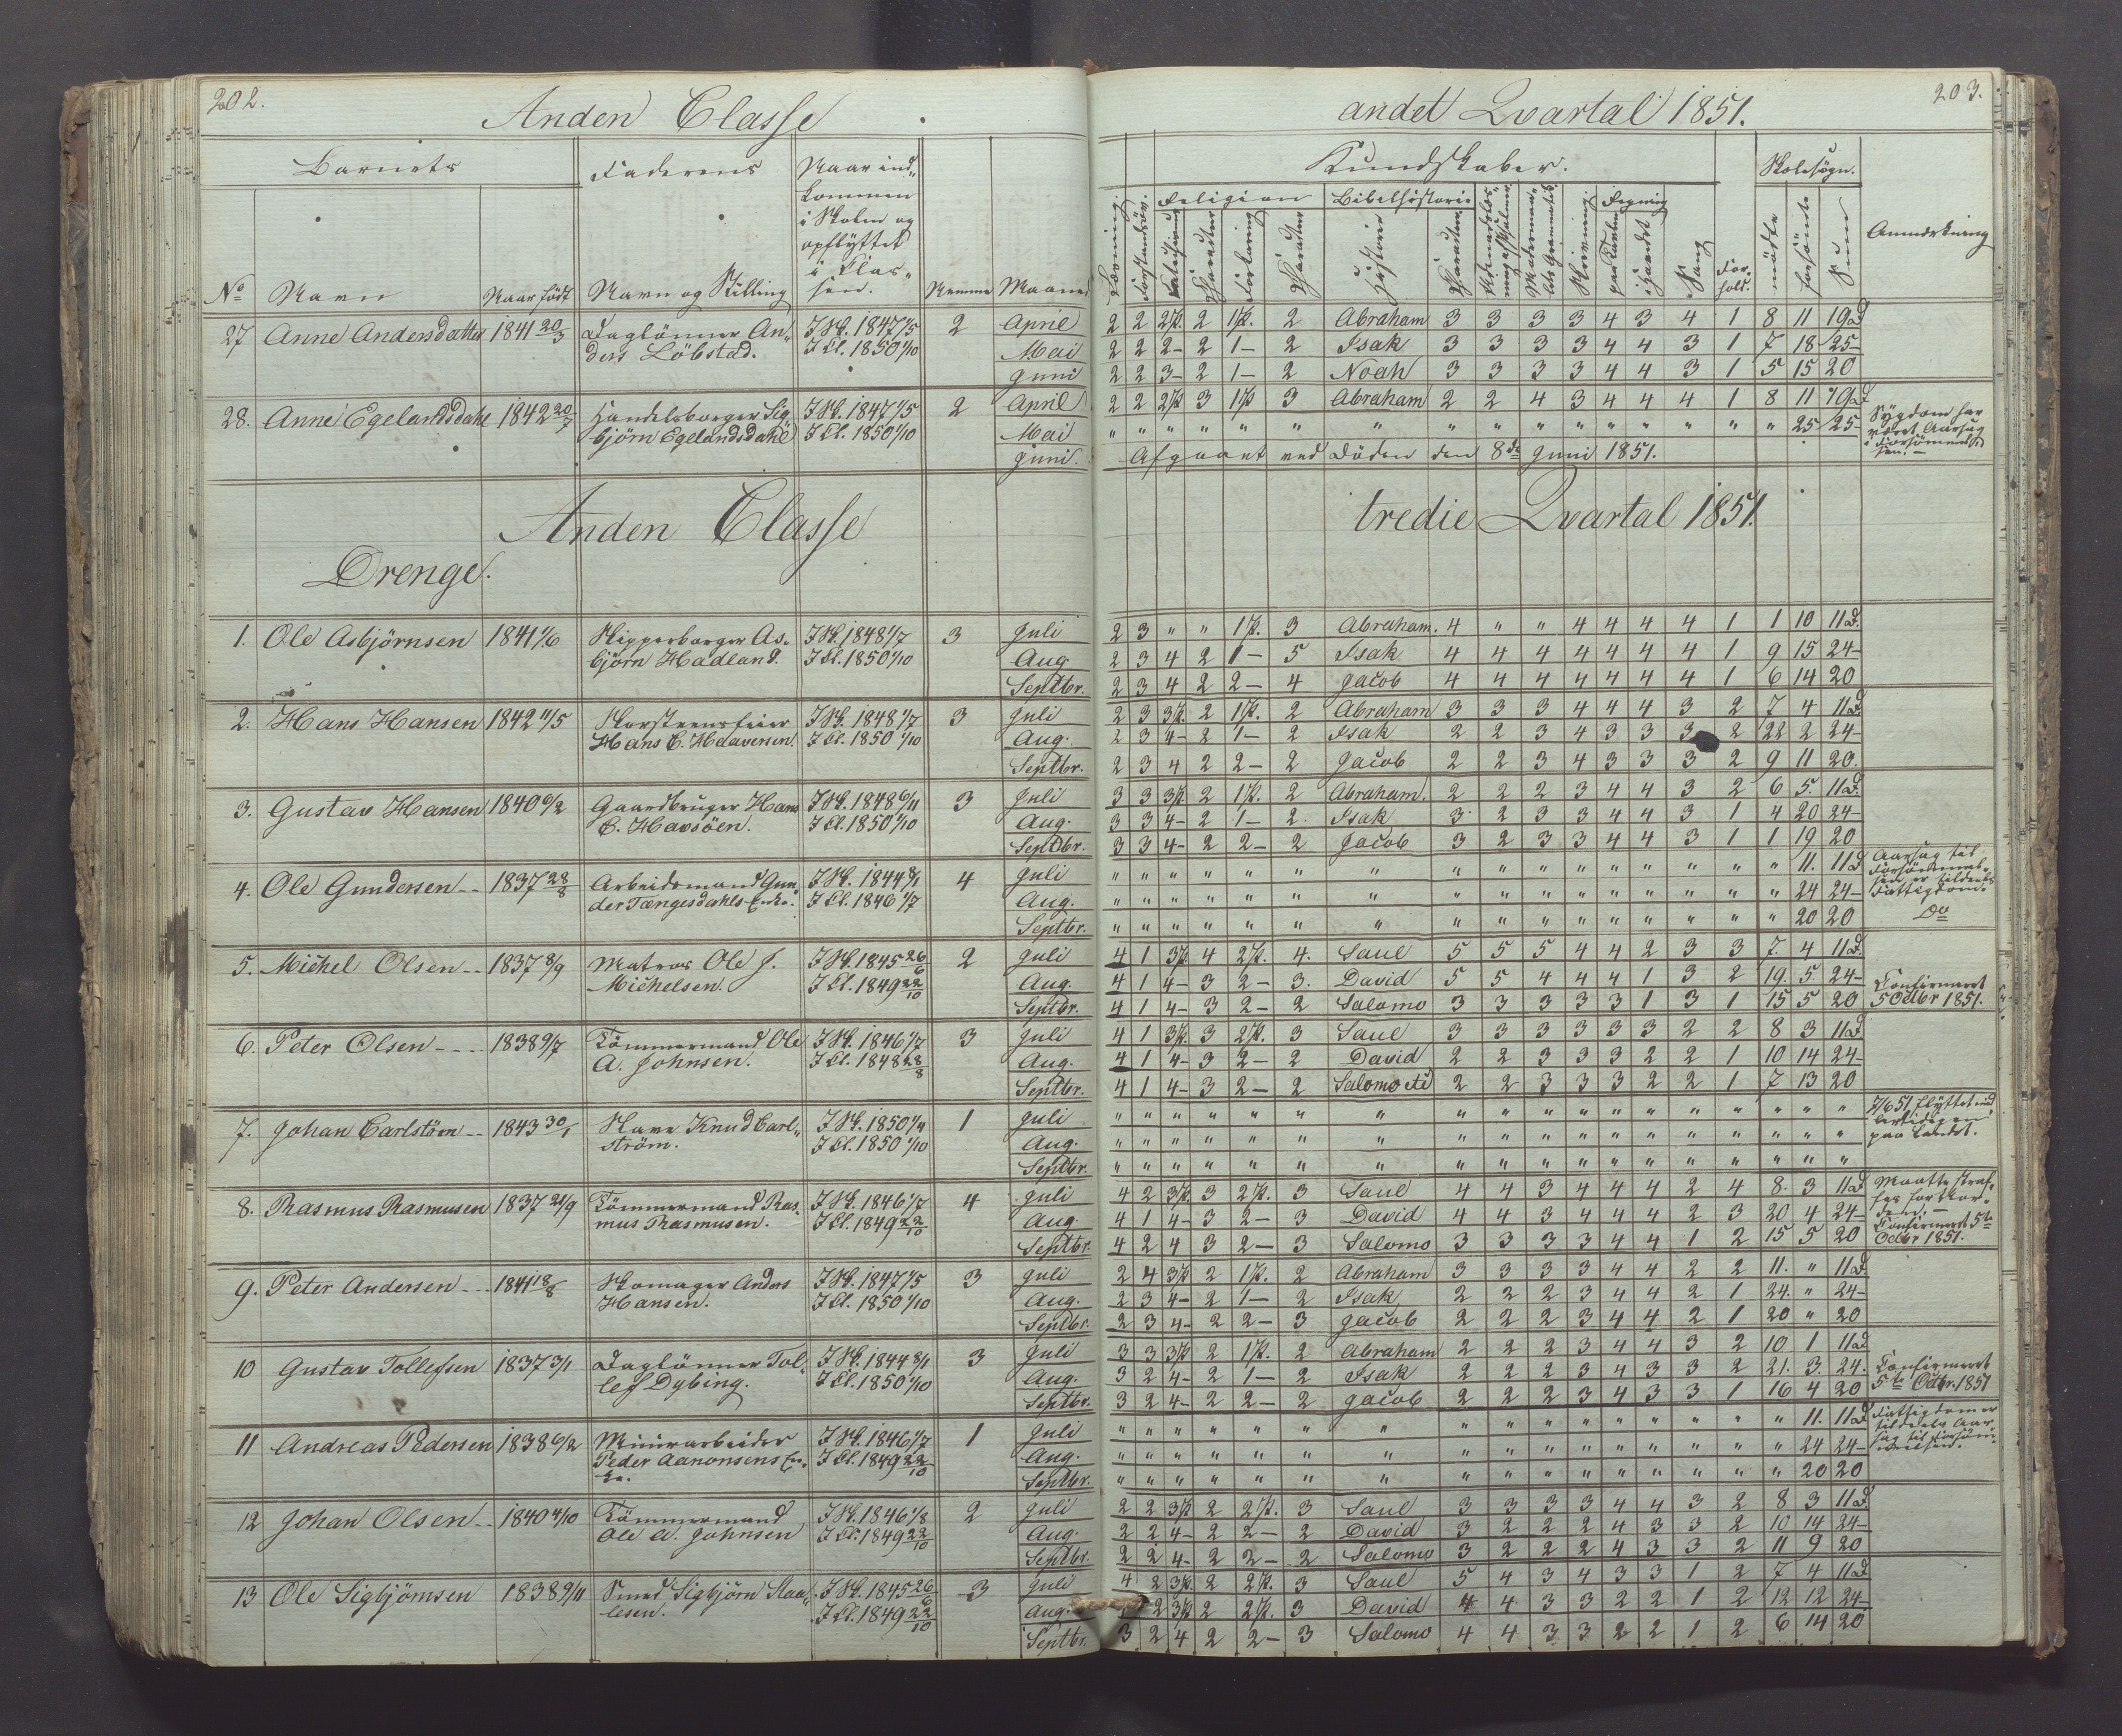 202.
Anden Classe
Barnets
Faderens
Naar ind-
kommen
i Skolen og
opflyttet
i Clas-
sen.
No Navn Naar født Navn og Stilling Nemme Maaned
27 Anne Andersdatter 1841 20/3 Daglönner An- I Sk. 1847 1/5 2 April
ders Löbstad. I Cl. 1850 1/10 Mai
Juni
28. Anne Egelandsdahl 1842 20/7 Handelsborger Sig- I Sk. 1847 1/5 2 April
bjørn Egelandsdahl I Cl. 1850 1/10 Mai
Juni.
Anden Classe
Drenge.
1. Ole Asbjörnsen 1841 1/6 Skipperborger As- I Sk. 1848 1/7 3 Juli
björn Hadland. I Cl. 1850 1/10 Aug.
Septbr.
2. Hans Hansen 1842 11/5 Skorsteensfeier I Sk. 1848 1/7 3 Juli
Hans C. Hdaversen. I Cl. 1850 1/10 Aug.
Septbr.
3. Gustav Hansen 1840 6/2 Gaardbruger Hans I Sk. 1848 6/11 3 Juli
C. Havsöen. I Cl. 1850 1/10 Aug.
Septbr.
4. Ole Gundersen 1837 28/8 Arbeidsmand Gun- I Sk. 1844 8/1 4 Juli
der Tængesdahls Enke. I Cl. 1846 1/7 Aug.
Septbr.
5. Michel Olsen 1837 8/9 Matros Ole J. I Sk. 1845 26/6 2 Juli
Michelsen. I Cl. 1849 22/10 Aug.
Septbr.
6. Peter Olsen 1838 9/7 Tömmermand Ole I Sk. 1846 1/7 3 Juli
A. Johnsen. I Cl. 1848 28/8 Aug.
Septbr.
7. Johan Carlström 1843 30/1 Knud Carl- I Sk. 1850 1/4 1 Juli
ström. I Cl. 1850 1/10 Aug.
Septbr.
8. Rasmus Rasmusen 1837 21/9 Tömmermand Ras- I Sk. 1846 1/7 4 Juli
mus Rasmusen. I Cl. 1849 22/10 Aug.
Septbr.
9. Peter Andersen 1841 18/8 Skomager Anders I Sk. 1847 1/5 3 Juli
Hansen. I Cl. 1850 1/10 Aug.
Septbr.
10 Gustav Tollefsen 1837 3/1 Daglönner Tol- I Sk. 1844 8/1 3 Juli
lef Dybing. I Cl. 1850 1/10 Aug.
Septbr.
11 Andreas Pedersen 1838 6/2 Minerarbeider I Sk. 1846 1/7 1 Juli
Peder Aanonsens En- I Cl. 1849 22/10 Aug.
ke. Septbr.
12 Johan Olsen 1840 4/10 Tömmermand I Sk. 1846 1/8 2 Juli
Ole A. Johnsen I Cl. 1849 22/10 Aug.
Septbr.
13 Ole Sigbjörnsen 1838 9/11 Smed Sigbjörn Slaa- I Sk. 1845 26/6 3 Juli
lesen. I Cl. 1849 22/10 Aug.
Septbr.
203.
andet Qvartal 1851.
Kundskaber.
Skolesøgn.
Religion Bibelhistorie Regning
Læsning. Forstandsöv. Catechismus Charakter Forklaring Charakter Historie Charakter Skrivning paa Tavlen i Hovedet Sang For-hold. mödte forsömte Sum Anmærkning
2 2 2 P. 2 1 P. 2 Abraham 3 3 3 3 4 3 4 1 8 11 19 D
2 2 2 - 2 1 - 2 Isak 3 3 3 3 4 4 3 1 7 18 25 -
2 2 3 - 2 1 - 2 Noah 3 3 3 3 4 4 3 1 5 15 20
2 2 2 P 3 1 P 3 Abraham 2 2 4 3 4 4 4 1 8 11 19 D Sygdom har
" " " " " " " " " " " " " " " " 25 25 - været Aarsag
Afgaaet ved Döden den 8de Juni 1851. i Forsömmel-
sen. -
tredie Qvartal 1851.
2 3 " " 1 P. 3 Abraham. 4 " " 4 4 4 4 1 1 10 11 D.
2 3 4 2 1 - 5 Isak 4 4 4 4 4 4 4 1 9 15 24 -
2 3 4 2 2 - 4 Jacob 4 4 4 4 4 4 4 1 6 14 20
2 3 3 P. 2 1 P. 2 Abraham 3 3 3 4 4 4 3 2 7 4 11 D.
2 3 4 - 2 1 - 2 Isak 2 2 3 4 3 3 3 2 22 2 24 -
2 3 4 2 2 - 2 Jacob 2 2 3 4 3 3 3 2 9 11 20.
3 3 3 P. 2 1 P. 2 Abraham. 2 2 2 3 4 4 3 2 6 5. 11 D.
3 3 4 - 2 1 - 2. Isak 3 2 3 3 4 4 3 1 4 20 24 -
3 3 4 - 2 2 - 2 Jacob 3 2 3 3 4 4 3 1 1 19 20
" " " " " " " " " " " " " " " " 11. 11 D Aarsag til
" " " " " " " " " " " " " " " " 24 24 - Forsömmel-
" " " " " " " " " " " " " " " " 20 20 sen er tildeels
Fattigdom.
Do
4 1 3 P. 4 2 P. 4. Saul 5 5 5 4 4 2 3 3 7. 4 11 D.
4 1 4 - 3 2 - 3. David 5 5 4 4 4 1 3 2 19. 5. 24 - Confirmeret
4 1 4 - 3 2 - 2 Salomo 3 3 3 3 3 1 3 1 15 5 20 5 Octbr 1851.
4 1 3 P. 3 2 P. 3 Saul 3 3 3 3 3 3 2 2 8 3 11 D.
4 1 4 - 3 2 - 2 David 2 2 3 3 3 2 2 1 10 14 24 -
4 1 4 - 3 2 - 2 Salomo 2 2 3 3 3 2 2 1 7 13 20
" " " " " " " " " " " " " " " " " " 7/6 51 flyttet
" " " " " " " " " " " " " " " " " "
" " " " " " " " " " " " " " " " " " paa Landet.
4 2 3 P. 3 2 P. 3 Saul 4 4 3 4 4 4 2 4 8. 3 11 D Maatte straf-
4 1 4 - 3 2 - 3 David 4 4 3 4 4 4 2 3 20 4 24 - fes for
4 2 4 3 2 - 3 Salomo 3 3 3 3 4 4 1 2 15 5 20 Confirmeret 5te
Octbr 1851.
2 4 3 P 2 1 P. 2 Abraham 3 3 3 3 4 4 2 2 11. " 11 D.
2 3 4 - 2 1 - 2 Isak 2 2 2 3 4 4 2 1 24. " 24 -
2 3 4 - 2 2 - 3 Jacob 2 2 2 3 4 4 2 1 20 " 20
3 3 3 P 2 1 P. 2 Abraham 2 2 2 3 4 4 3 2 10 1 11 D
3 2 4 - 2 1 - 2 Isak 2 2 2 3 4 3 3 2 21. 3. 24. Confirmeret
3 2 4 - 2 2 - 2 Jacob 2 2 2 3 4 3 3 1 16 4 20 5te Octbr. 1851
" " " " " " " " " " " " " " " " 11. 11 D Fattigdom er
" " " " " " " " " " " " " " " " 24 24 - tildeels Aar-
" " " " " " " " " " " " " " " " 20 20 sag til Forsöm-
melsen.
2 2 3 P 2 2 P. 3 Saul 3 3 3 3 4 4 3 2 8 3 11 D.
2 2 4 - 2 2 - 2 David 3 2 2 2 4 3 3 2 10 14 24 -
2 2 4 - 2 2 - 2 Salomo 3 2 2 2 4 3 3 2 11 9 20
4 2 3 P. 2 2 P. 3 Saul 5 4 3 4 3 3 1 2 7 4 11 D
2 3 P 2 2 P. 3 David 4 4 3 3 2 2 1 2 12 12 24 -
3 2 4 2 2 - 3 Salomo 4 4 3 3 2 2 1 2 6 14 20